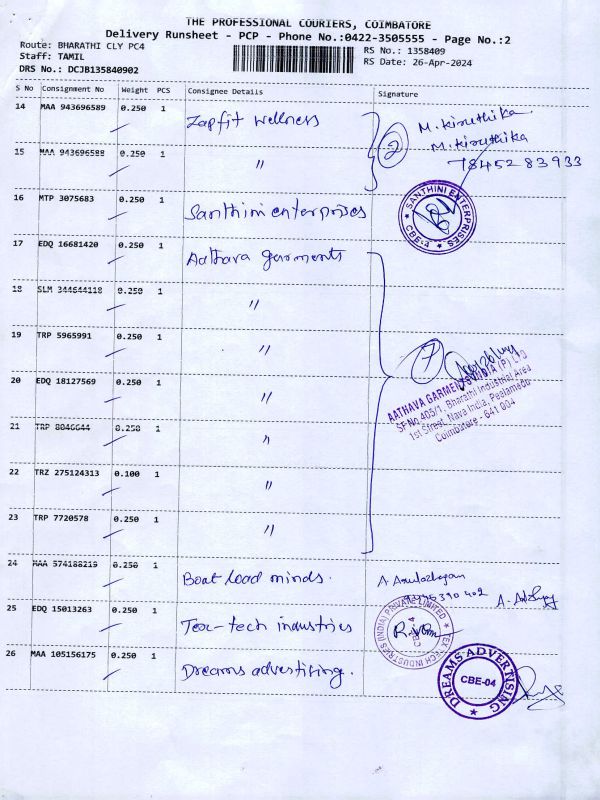 THE PROFESSIONAL COURIERS, COIMBATORE
Delivery Runsheet - PCP - Phone No.:0422-3505555 - Page No.:2
Route: BHARATHI CLY PC4
RS No.: 1358409
Staff: TAMIL
RS Date: 26-Apr-2024
DRS No.: DCJB135840902
S No Consignment No Weight PCS Consignee Details Signature
14 MAA 943696589 0.250 1 Zapfit wellness
2 M. Kiruthika
M. Kiruthika
15 MAA 943696588 0.250 1 "
7845283933
16 MTP 3075683 0.250 1 Santhini enterprises
SANTHINI ENTERPRISES CBE-4
17 EDQ 16681420 0.250 1 Aathava garments
18 SLM 344644118 0.250 1 "
19 TRP 5965991 0.250 1 "
7
20 EDQ 18127569 0.250 1 "
AATHAVA GARMENTS INDIA (P) LTD
SF No 405/1, Bharathi Industrial Area
1st Street, Nava India, Peelamedu
Coimbatore - 641 004
21 TRP 8046644 0.250 1 "
22 TRZ 275124313 0.100 1 "
23 TRP 7720578 0.250 1 "
24 MAA 574188219 0.250 1 Boat Load minds.
A. Arulazhagan
25 EDQ 15013263 0.250 1 Tex-tech industries
TEX-TECH INDUSTRIES (INDIA) PRIVATE LIMITED
26 MAA 105156175 0.250 1 Dreams advertising.
DREAMS ADVERTISING CBE-04